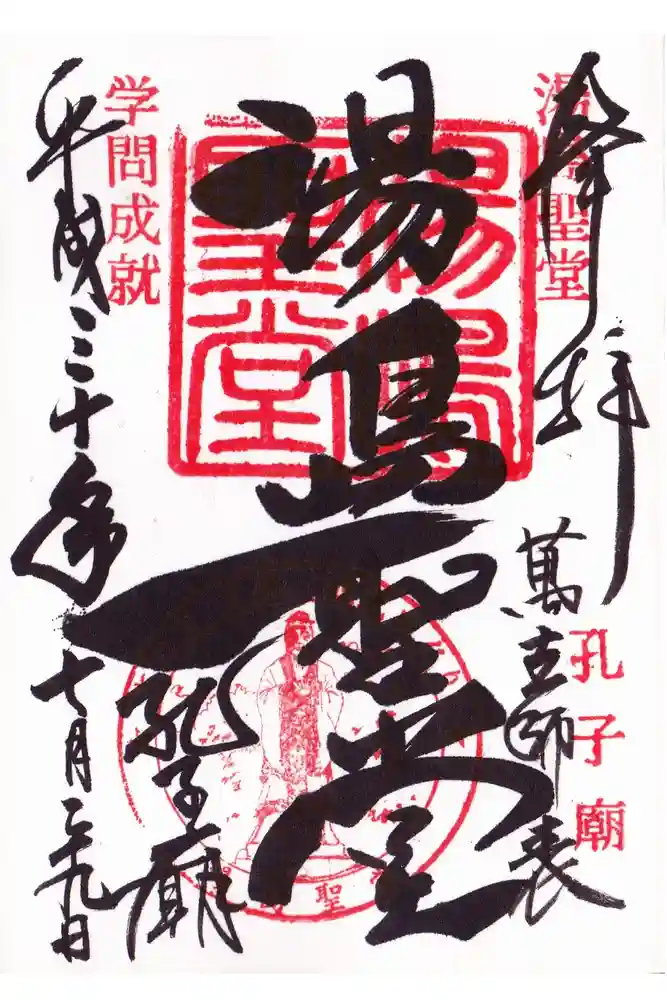 奉拝
湯島聖堂
萬世師表
孔子廟
湯島聖堂
湯島聖堂
孔子廟
学問成就
平成三十年七月二十九日